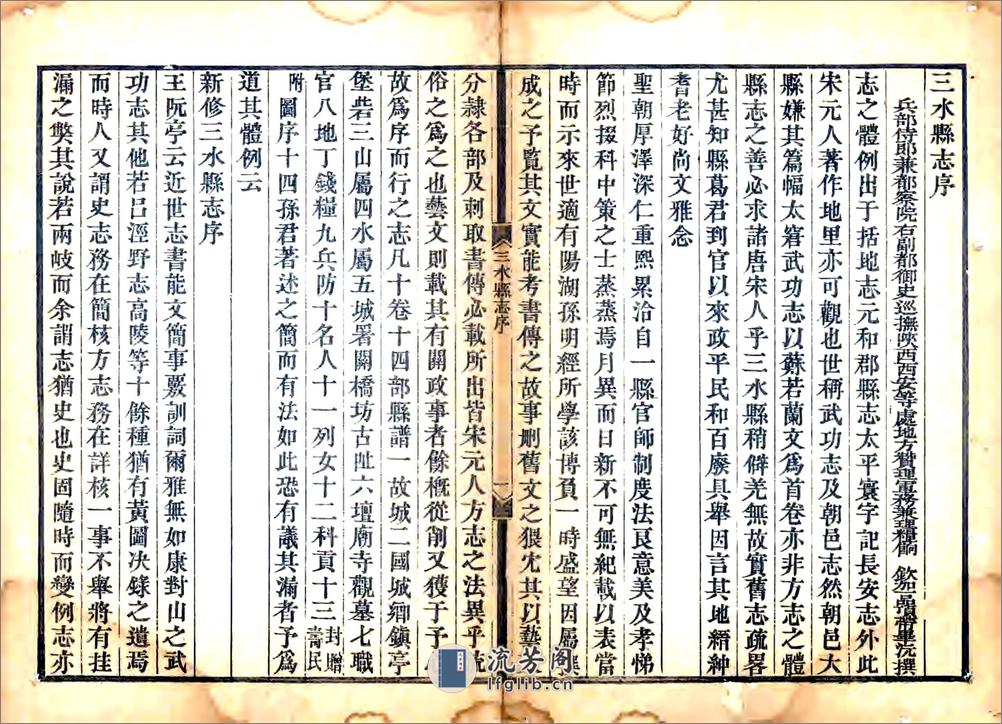 三水縣志序
兵部侍郎兼都察院右副都御史巡撫陝西西安等處地方贊理軍務兼理糧餉 欽加 畢沅撰
志之體例出于括地志元和郡縣志太平寰宇記長安志外此
宋元人著作地里亦可觀也世稱武功志及朝邑志然朝邑大
縣嫌其篇幅太窘武功志以蘇若蘭文爲首卷亦非方志之體
縣志之善必求諸唐宋人乎三水縣稍僻羌無故實舊志疏畧
尤甚知縣葛君到官以來政平民和百廢具舉因言其地縉紳
耆老好尚文雅念
聖朝厚澤深仁重熙累洽自一縣官師制度法良意美及孝悌
節烈掇科中策之士蒸蒸焉月異而日新不可無紀載以表當
時而示來世適有陽湖孫明經所學該博負一時盛望因屬
成之予覽其文實能考書傳之故事刪舊文之猥冗其以藝
三水縣志序
一
分隸各部及刺取書傳必載所出皆宋元人方志之法異乎流
俗之爲之也藝文則載其有關政事者餘槪從削又獲于予
故爲序而行之志凡十卷十四部縣譜一故城二國城鄉鎭亭
堡砦三山屬四水屬五城署關橋坊古阯六壇廟寺觀墓七職
官八地丁錢糧九兵防十名人十一列女十二科貢十三封贈壽民
附圖序十四孫君著述之簡而有法如此恐有議其漏者予爲
道其體例云
新修三水縣志序
王阮亭云近世志書能文簡事覈訓詞爾雅無如康對山之武
功志其他若呂涇野志高陵等十餘種猶有黃圖決錄之遺焉
而時人又謂史志務在簡核方志務在詳核一事不舉將有挂
漏之獘其說若兩岐而余謂志猶史也史固隨時而變例志亦
流芳阁
lfglib.cn